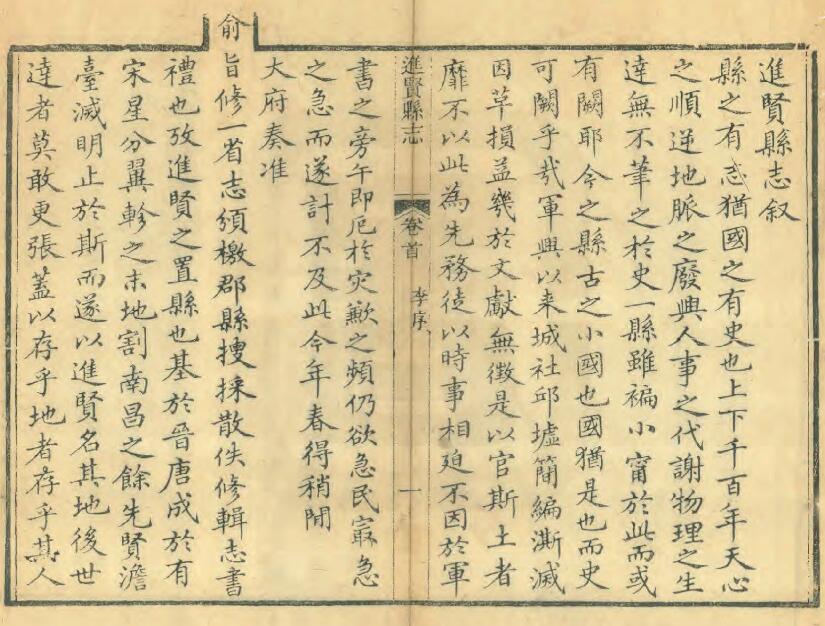 進賢縣志叙
縣之有志猶國之有史也上下千百年天心
之順逆地脈之廢興人事之代謝物理之生
達無不筆之於史一縣雖褊小甯於此而或
有闕耶今之縣古之小國也國猶是也而史
可闕乎哉軍興以来城社邱墟簡編澌滅
因革損益幾於文獻無徵是以官斯土者
靡不以此為先務徒以時事相廹不因於軍
進賢縣志
卷首
李序
一
書之旁午即厄於灾歉之頻仍欲急民㝡急
之急而遂計不及此今年春得稍閒
大府奏准
俞旨修一省志頒檄郡縣搜採散佚修輯志書
禮也攷進賢之置縣也基於晉唐成於有
宋星分翼軫之末地割南昌之餘先賢澹
臺滅明止於斯而遂以進賢名其地後世
達者莫敢更張蓋以存乎地者存乎其人